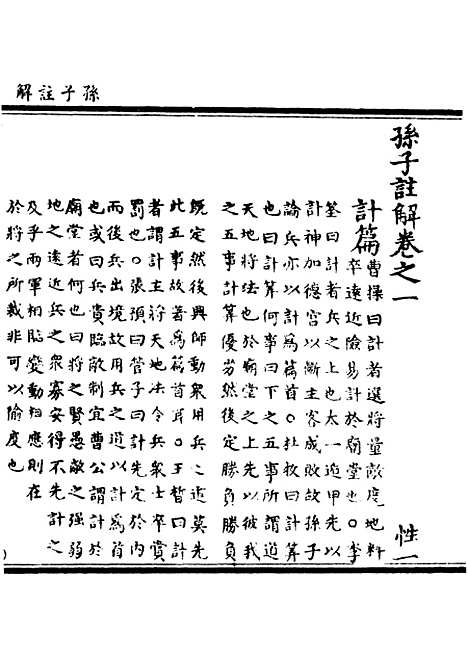 孫子註解
孫子註解卷之一
性一
計篇
曹操曰計者選將量敵度地料
卒遠近險易計於廟堂也○李
筌曰計者兵之上也太一遁甲先以
計神加德宮以斷主客成敗故孫子
論兵亦以計為篇首○杜牧曰計算
也曰計算何事曰下之五事所謂道
天地將法也於廟堂之上先以彼我
之五事計算優劣然後定勝負勝負
既定然後興師動衆用兵之道莫先
此五事故著為篇首耳○王晳曰計
者謂計主將天地法令兵衆士卒賞
罰也○張預曰管子曰計先定於內
而後兵出境故用兵之道以計為首
也或曰兵貴臨敵制宜曹公謂計於
廟堂者何也曰將之賢愚敵之強弱
地之遠近兵之衆寡安得不先計之
及乎兩軍相臨變動相應則在
於將之所裁非可以隃度也